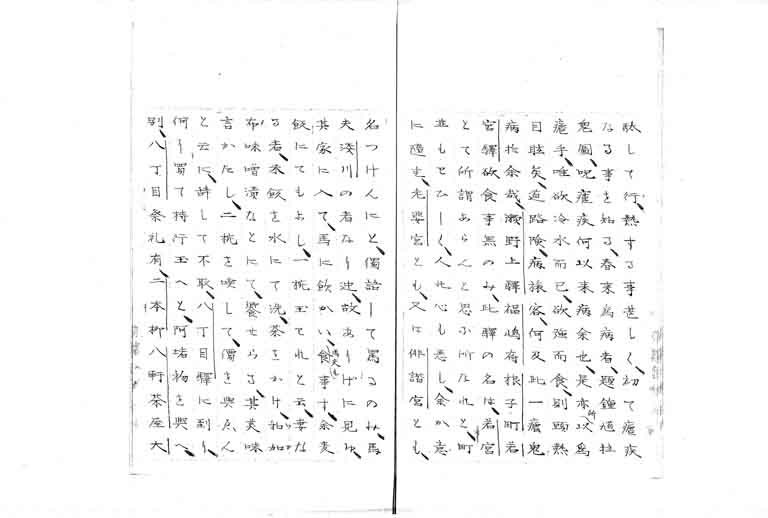 駄して行熱する事甚しく初て瘧疾
なる事を知る春来為病者題鐘馗拄
鬼圖呪瘧疾何以来病余也是亦所以為
瘧手唯欲冷水而已欲強而食則頭熱
目眩矣道路険病旅客何又此一瘧鬼
病拄余哉瀬野上驛福嶋有根子町若
宮驛飲食事無のみ此驛の名は若宮
とて所謂あらんと思ふ所なれと町
並もさひしく人此心も悪し余か意
に随す老婆宮とも又は俳諧宮とも
名つけんにと獨語して罵るのみ馬
夫湊川の者なり逆故ありけに見ゆ
其家に入て馬に飲かい食事す余麦
飯にてもよし一椀玉てれと云妻な
る者米飯を水にて洗茶をかけ和加
布味噌漬なとにて饗せらる其美味
言かたし二椀を喫して價を與ゑん
と云に辞して不取八丁目驛に到り
何り蜀て持行玉へと阿堵物を與へ
別八丁目条礼有二本柳八軒茶屋大